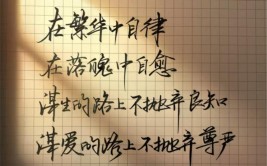 在繁华中自律
在落魄中自愈
谋生的路上不抛弃良知
谋爱的路上不抛弃尊严